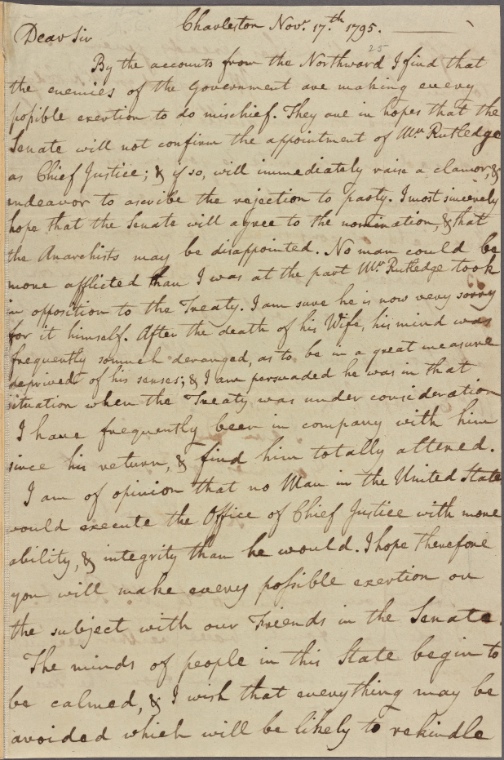 Charleston Nov.r 17.th 1795.
25
Dear Sir
By the accounts from the Northward I find that
the enemies of the Government are making every
possible exertion to do mischief. They are in hopes that the
Senate will not confirm the appointment of Mr. Rutledge
as Chief Justice; & if so, will immediately raise a clamor, &
endeavor to ascribe the rejection to party. I most sincerely
hope that the Senate will agree to the nomination, & that
the Anarchists may be disappointed. No man could be
more afflicted than I was at the part Mr. Rutledge took
in opposition to the Treaty. I am sure he is now very sorry
for it himself. After the death of his Wife, his mind was
frequently so much deranged, as to be in a great measure
deprived of his senses; & I am persuaded he was in that
situation when the Treaty was under consideration
I have frequently been in company with him
since his return, & find him totally altered.
I am of opinion that no Man in the United State
would execute the Office of Chief Justice with more
ability, & integrity than he would. I hope therefore
you will make every possible exertion on
the subject with our Friends in the Senate.
The minds of people in this State begin to
be calmed, & I wish that everything may be
avoided which will be likely to rekindle